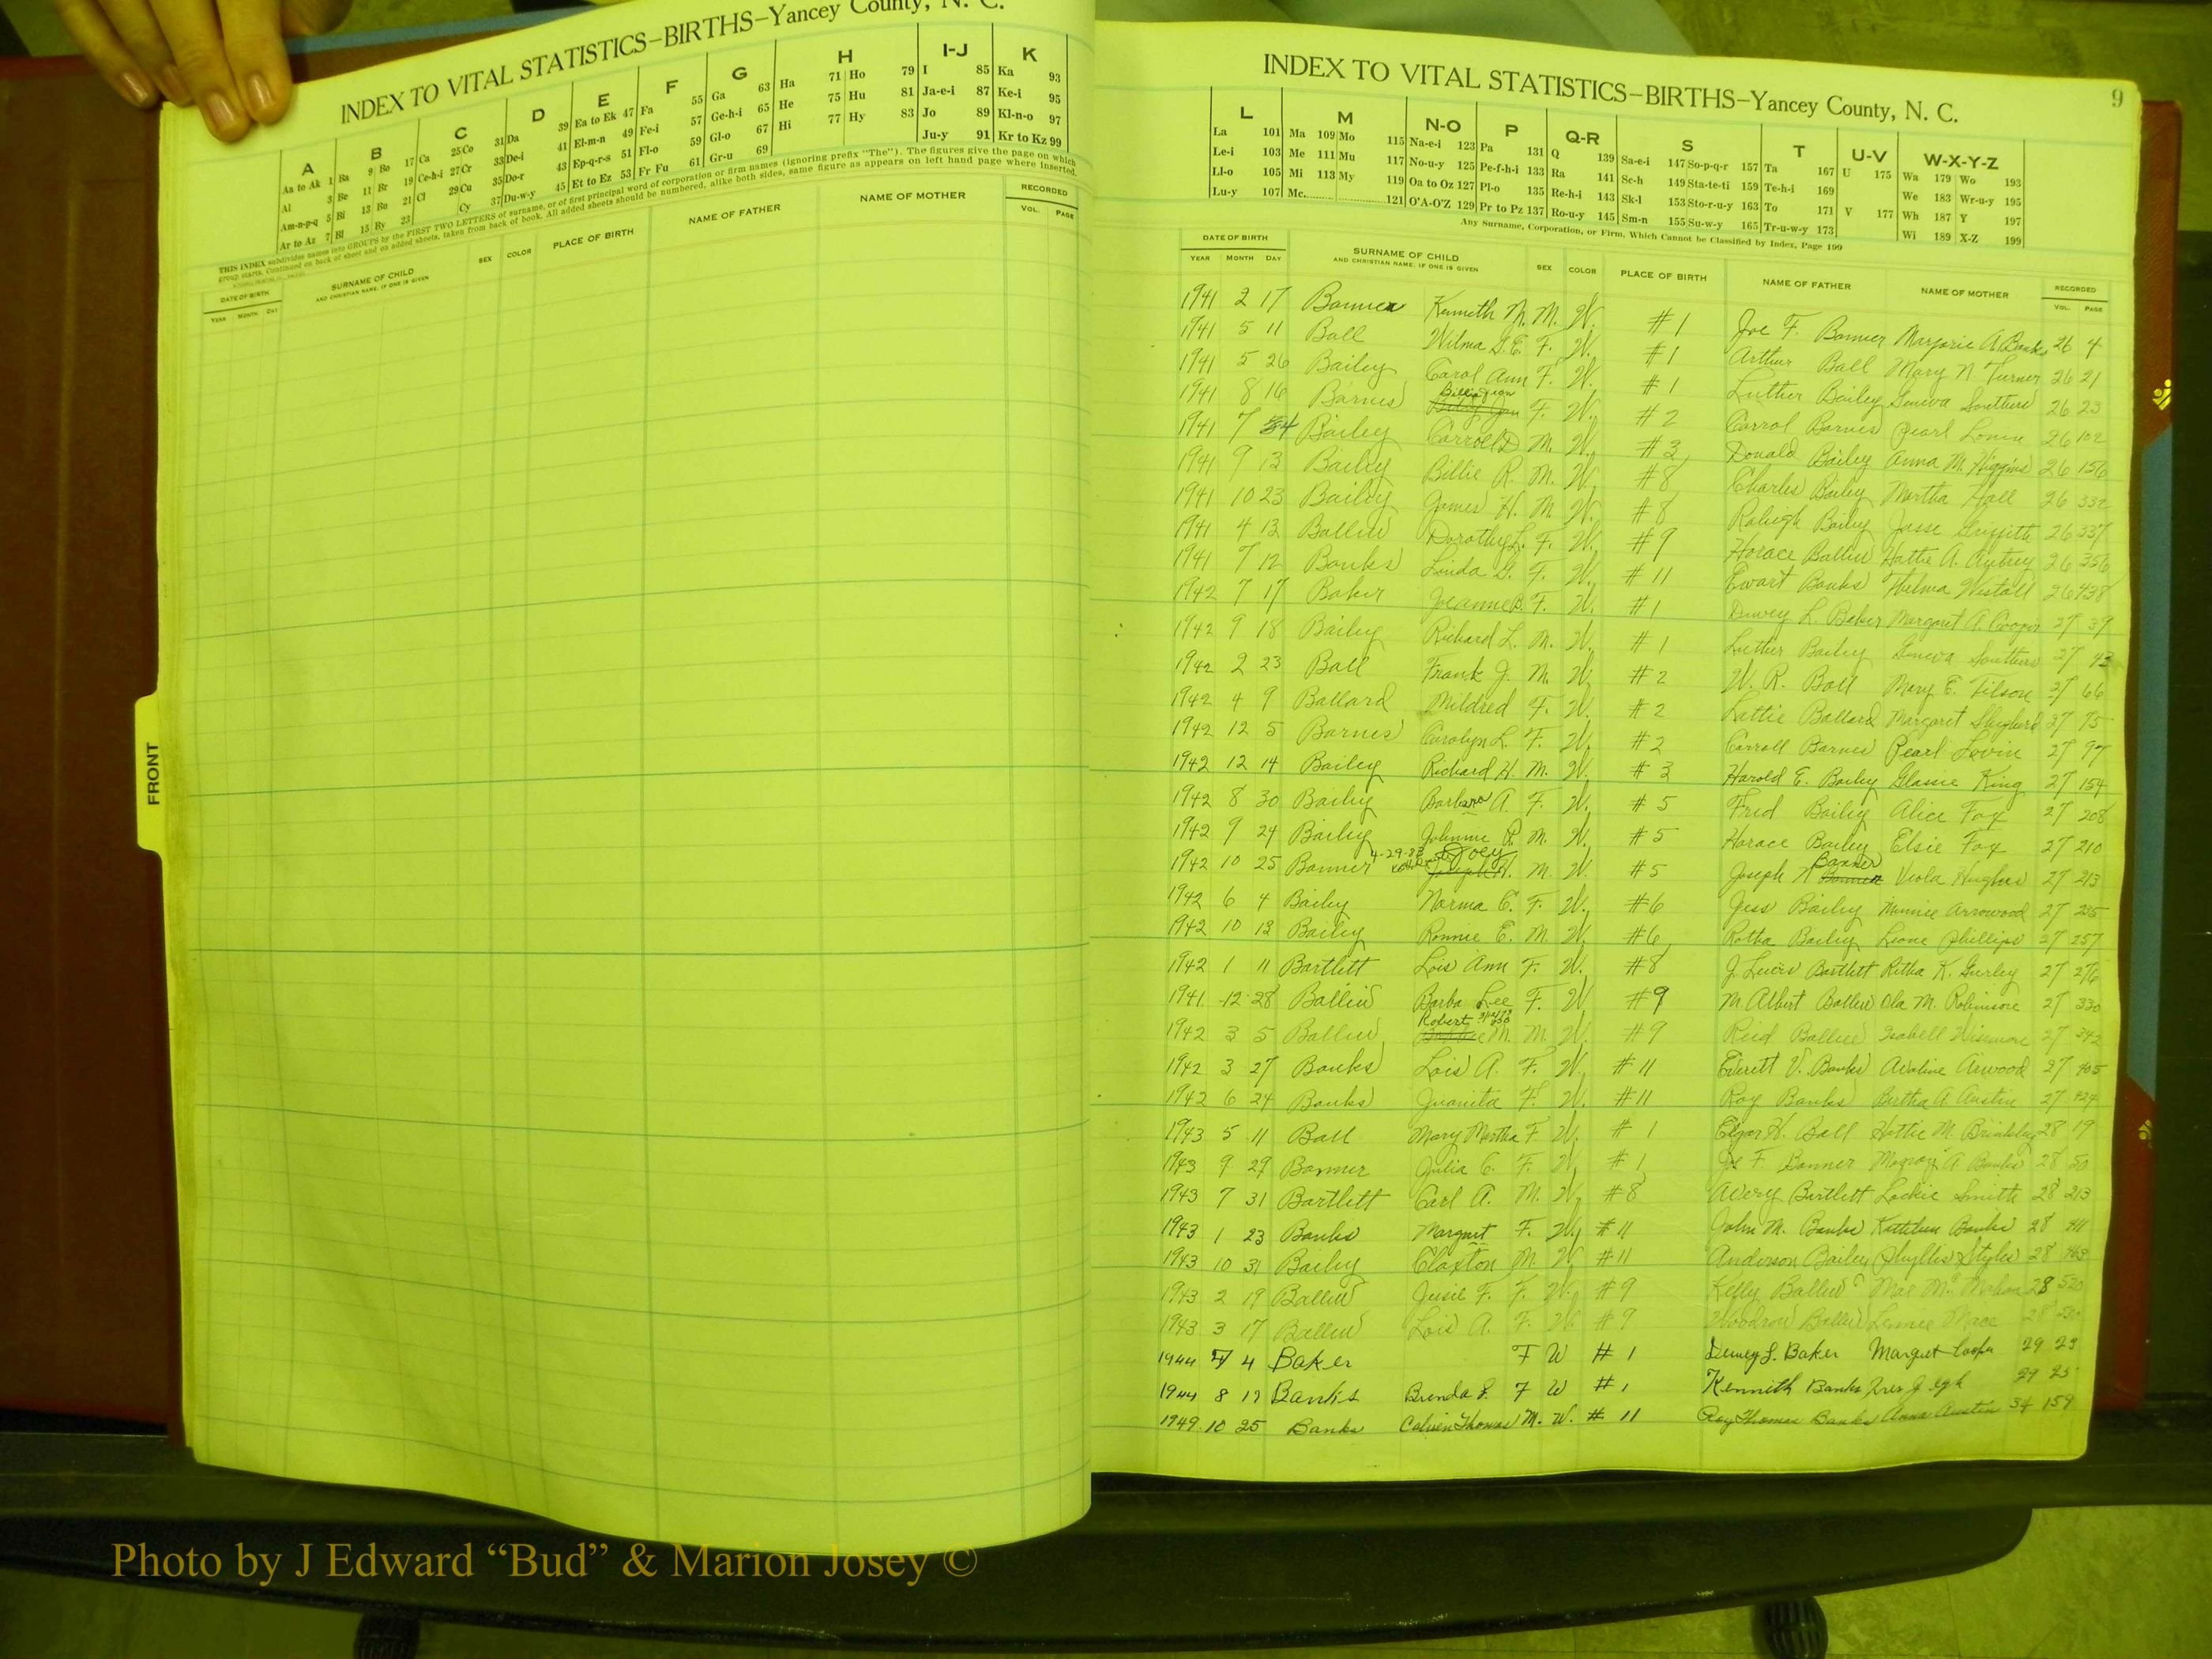 INDEX TO VITAL STATISTICS–BIRTHS–Yancey County, N. C.
A B C D E F G H I-J K
Aa to Ak 1 Ba 9 Bo 17 Ca 25 Co 31 Da 39 Ea to Ek 47 Fa 55 Ga 63 Ha 71 Ho 79 I 85 Ka 93
Al 3 Be 11 Br 19 Ce-h-i 27 Cr 33 De-i 41 El-m-n 49 Fe-i 57 Ge-h-i 65 He 75 Hu 81 Ja-e-i 87 Ke-i 95
Am-n-p-q 5 Bi 13 Bu 21 Cl 29 Cu 35 Do-r 43 Ep-q-r-s 51 Fl-o 59 Gl-o 67 Hi 77 Hy 83 Jo 89 Kl-n-o 97
Ar to Az 7 Bl 15 By 23 Cy 37 Du-w-y 45 Et to Ez 53 Fr Fu 61 Gr-u 69 Ju-y 91 Kr to Kz 99
THIS INDEX subdivides names into GROUPS by the FIRST TWO LETTERS of surname, or of first principal word of corporation or firm names (ignoring prefix "The"). The figures give the page on which
group starts. Continued on back of sheet and on added sheets, taken from back of book. All added sheets should be numbered, alike both sides, same figure as appears on left hand page where inserted.
DATE OF BIRTH SURNAME OF CHILD SEX COLOR PLACE OF BIRTH NAME OF FATHER NAME OF MOTHER RECORDED
YEAR MONTH DAY AND CHRISTIAN NAME, IF ONE IS GIVEN VOL. PAGE
FRONT
INDEX TO VITAL STATISTICS–BIRTHS–Yancey County, N. C.
9
L M N-O P Q-R S T U-V W-X-Y-Z
La 101 Ma 109 Mo 115 Na-e-i 123 Pa 131 Q 139 Sa-e-i 147 So-p-q-r 157 Ta 167 U 175 Wa 179 Wo 193
Le-i 103 Me 111 Mu 117 No-u-y 125 Pe-f-h-i 133 Ra 141 Sc-h 149 Sta-te-ti 159 Te-h-i 169 We 183 Wr-u-y 195
Ll-o 105 Mi 113 My 119 Oa to Oz 127 Pl-o 135 Re-h-i 143 Sk-l 153 Sto-r-u-y 163 To 171 V 177 Wh 187 Y 197
Lu-y 107 Mc 121 O'A-O'Z 129 Pr to Pz 137 Ro-u-y 145 Sm-n 155 Su-w-y 165 Tr-u-w-y 173 Wi 189 X-Z 199
Any Surname, Corporation, or Firm, Which Cannot be Classified by Index, Page 199
DATE OF BIRTH SURNAME OF CHILD SEX COLOR PLACE OF BIRTH NAME OF FATHER NAME OF MOTHER RECORDED
YEAR MONTH DAY AND CHRISTIAN NAME, IF ONE IS GIVEN VOL. PAGE
1941 2 17 Banner Kenneth N. M. W. #1 Joe F. Banner Marjorie A. Banks 26 4
1941 5 11 Ball Wilma G.E. F. W. #1 Arthur Ball Mary N Turner 26 21
1941 5 26 Bailey Carol Ann F. W. #1 Luther Bailey Geneva 26 23
1941 8 16 Barnes Billie Jean F. W. #2 Carrol Barnes Pearl 26 102
1941 7 Bailey Carroll D M. W. #3 Donald Bailey Anna M. Higgins 26 156
1941 9 13 Bailey Billie R. M. W. #8 Charles Bailey Martha Hall 26 332
1941 10 23 Bailey James H. M W. #8 Raleigh Bailey Griffith 26 337
1941 4 13 Ballew Dorothy L. F. W. #9 Horace Ballew Hattie A. Autrey 26 356
1941 7 12 Banks Linda G. F. W. #11 Ewart Banks Thelma Westall 26 438
1942 7 17 Baker Jeanne B. F. W. #1 Dewey L. Baker Margaret A. Cooper 27 39
1942 9 18 Bailey Richard L. M. W. #1 Luther Bailey Geneva 27 43
1942 2 23 Ball Frank J. M W. #2 W. R. Ball Mary E. Tilson 27 66
1942 4 9 Ballard Mildred F. W. #2 Lattie Ballard Margaret 27 75
1942 12 5 Barnes Carolyn L. F. W. #2 Carroll Barnes Pearl Lovin 27 97
1942 12 14 Bailey Richard H. M. W. #3 Harold E. Bailey Glassie King 27 154
1942 8 30 Bailey Barbara A. F. W. #5 Fred Bailey Alice Fox 27 208
1942 9 24 Bailey Johnnie R. M. W. #5 Horace Bailey Elsie Fox 27 210
1942 10 25 Banner 4-29-83 Joey Joseph H. M. W. #5 Joseph N Banner Viola Hughes 27 213
1942 6 4 Bailey Norma E. F. W. #6 Jess Bailey Minnie Arrowood 27 235
1942 10 13 Bailey Ronnie E. M. W. #6 Rotha Bailey Leone Phillips 27 257
1942 1 11 Bartlett Lois Ann F. W. #8 J. Lewis Bartlett Retha K. Gurley 27 276
1941 12 28 Ballew Barba Lee F. W #9 M Albert Ballew Ola M. Robinson 27 330
1942 3 5 Ballew Robert M. M. W. #9 Reid Ballew Isabell Wiseman 27 342
1942 3 27 Banks Lois A. F. W. #11 Everett V. Banks Avaline Arwood 27 405
1942 6 24 Banks Juanita F. W. #11 Roy Banks Bertha A. Austin 27 424
1943 5 11 Ball Mary Martha F W. #1 Edgar H. Ball Hattie M. Brinkley 28 19
1943 9 29 Banner Julia C. F. W, #1 Joe F. Banner A. Banks 28 50
1943 7 31 Bartlett Carl A. M. W, #8 Avery Bartlett Lockie Smith 28 213
1943 1 23 Banks Margret F. W, #11 John M. Banks Kathleen Banks 28
1943 10 31 Bailey Claxton M. W #11 Anderson Bailey Phyllis Styles 28
1943 2 19 Ballew F. F. W. #9 Kelly Ballew Mae McMahan 28 520
1943 3 17 Ballew Lois A. F. W #9 Woodrow Ballew Mace 28
1944 7 4 Baker F W #1 Dewey L. Baker Margret Cooper 29 23
1944 8 17 Banks Brenda F W #1 Kennith Banks 29 25
1949 10 25 Banks Calvin Thomas M. W. # 11 Roy Thomas Banks Anna Austin 34 159
Photo by J Edward “Bud” & Marion Josey ©